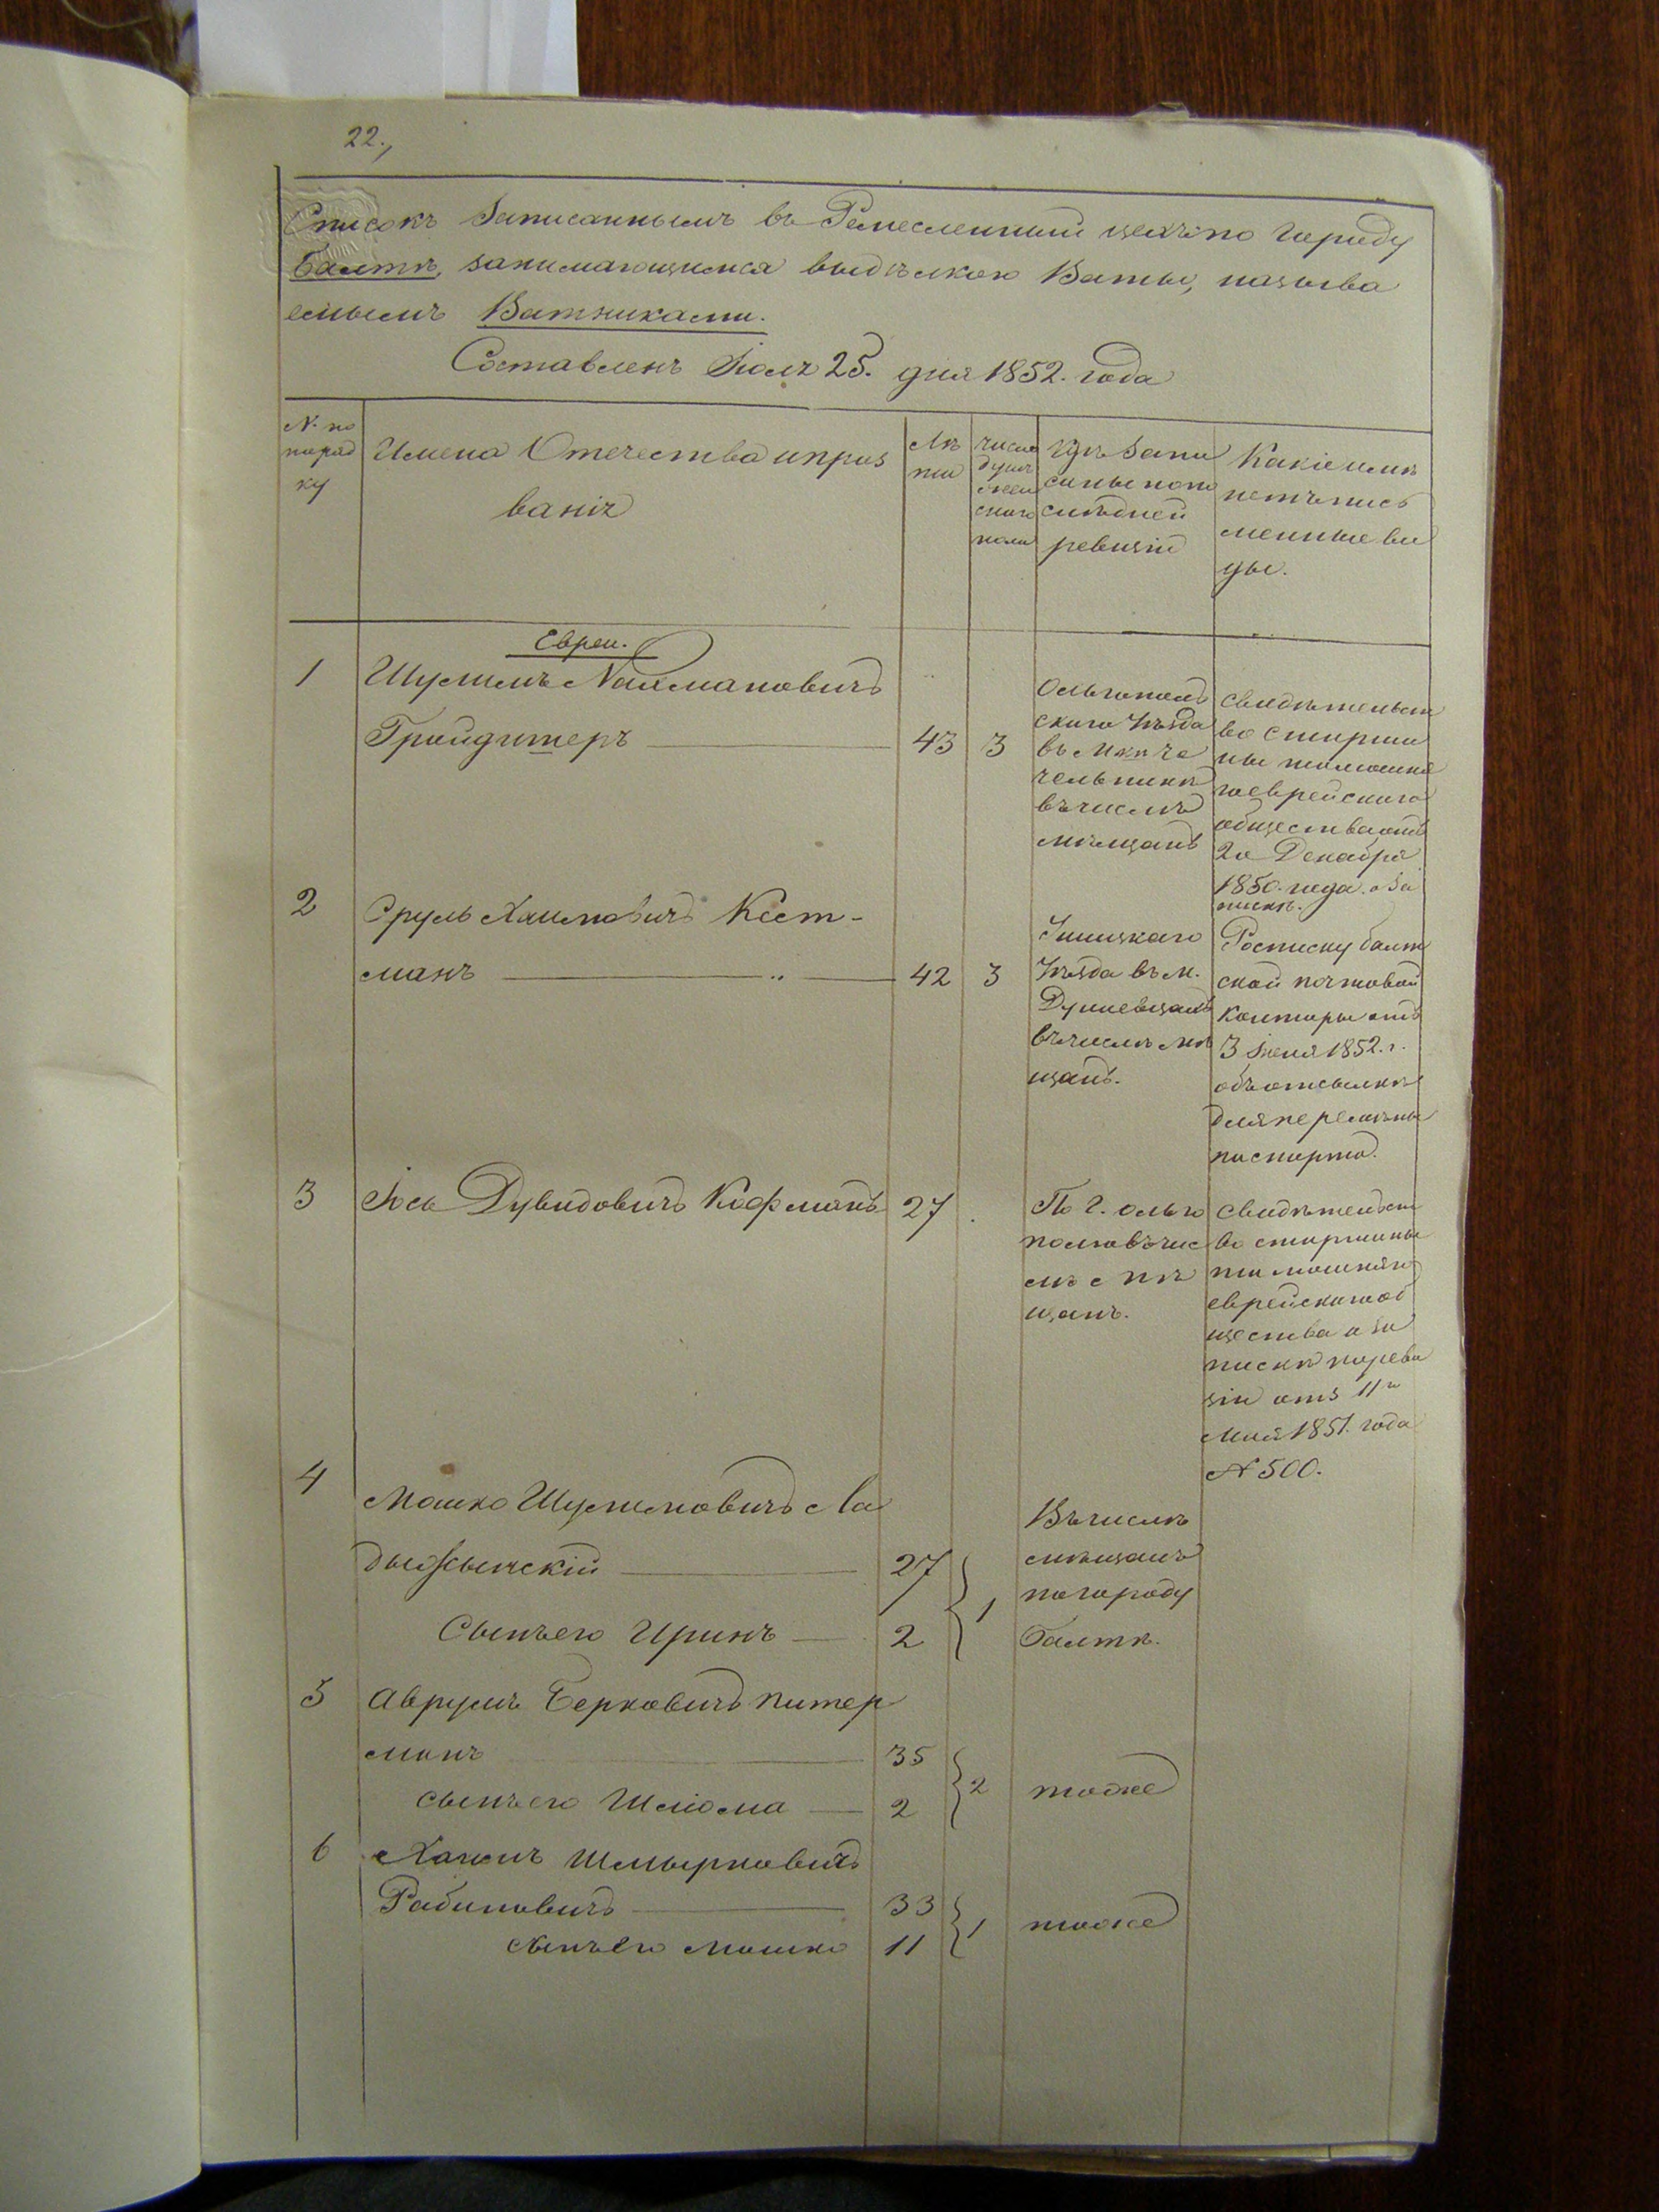 22.,
Списокъ Записаннымъ въ Ремесленный цехъ по городу
Балтѣ, занимающимся выдѣлкою Ваты, называ
емымъ Ватниками.
Составленъ Іюля 25. дня 1852. года
№ по
поряд
ку
Имена Отечества и проз
ванія
Лѣ
та
число
душъ
жен
скаго
пола
Гдѣ запи
саны по по
слѣдней
ревизіи
Какіе имѣ
ютъ пись
менные ви
ды.
Евреи.
1
Шулимъ Нахмановичъ
Гройдитеръ
43
3
Ольгополь
скаго Уѣзда
въ м. Че
чельникѣ
въ числѣ
мѣщанъ
свидѣтельст
во старши
ны тамошня
го еврейскаго
общества отъ
2го Декабря
1850. года. о за
пискѣ.
2
Сруль Хаимовичъ Кест-
манъ
42
3
Ушицкаго
Уѣзда въ м.
Дунаевцахъ
въ числѣ мѣ
щанъ.
Росписку балт
ской почтовой
конторы отъ
3 Іюня 1852. г.
объ отсылкѣ
для перемѣны
паспорта.
3
Іось Дувидовичъ Кофманъ
27
По г. Ольго
полю въ чис
лѣ мѣ
щанъ.
свидѣтельст
во старшины
тамошняго
еврейскаго об
щества о за
пискѣ по реви
зіи отъ 11го
мая 1851. года
№ 500.
4
Мошко Шулимовичъ Ла
дыжынскій
27
1
Сынъ его Иринъ
2
Въ числѣ
мѣщанъ
по городу
Балтѣ.
5
Аврумъ Берковичъ Питер
манъ
35
2
тоже
сынъ его Шліома
2
6
Хаимъ Шмырковичъ
Рабиновичъ
33
1
тоже
сынъ его Мошко
11